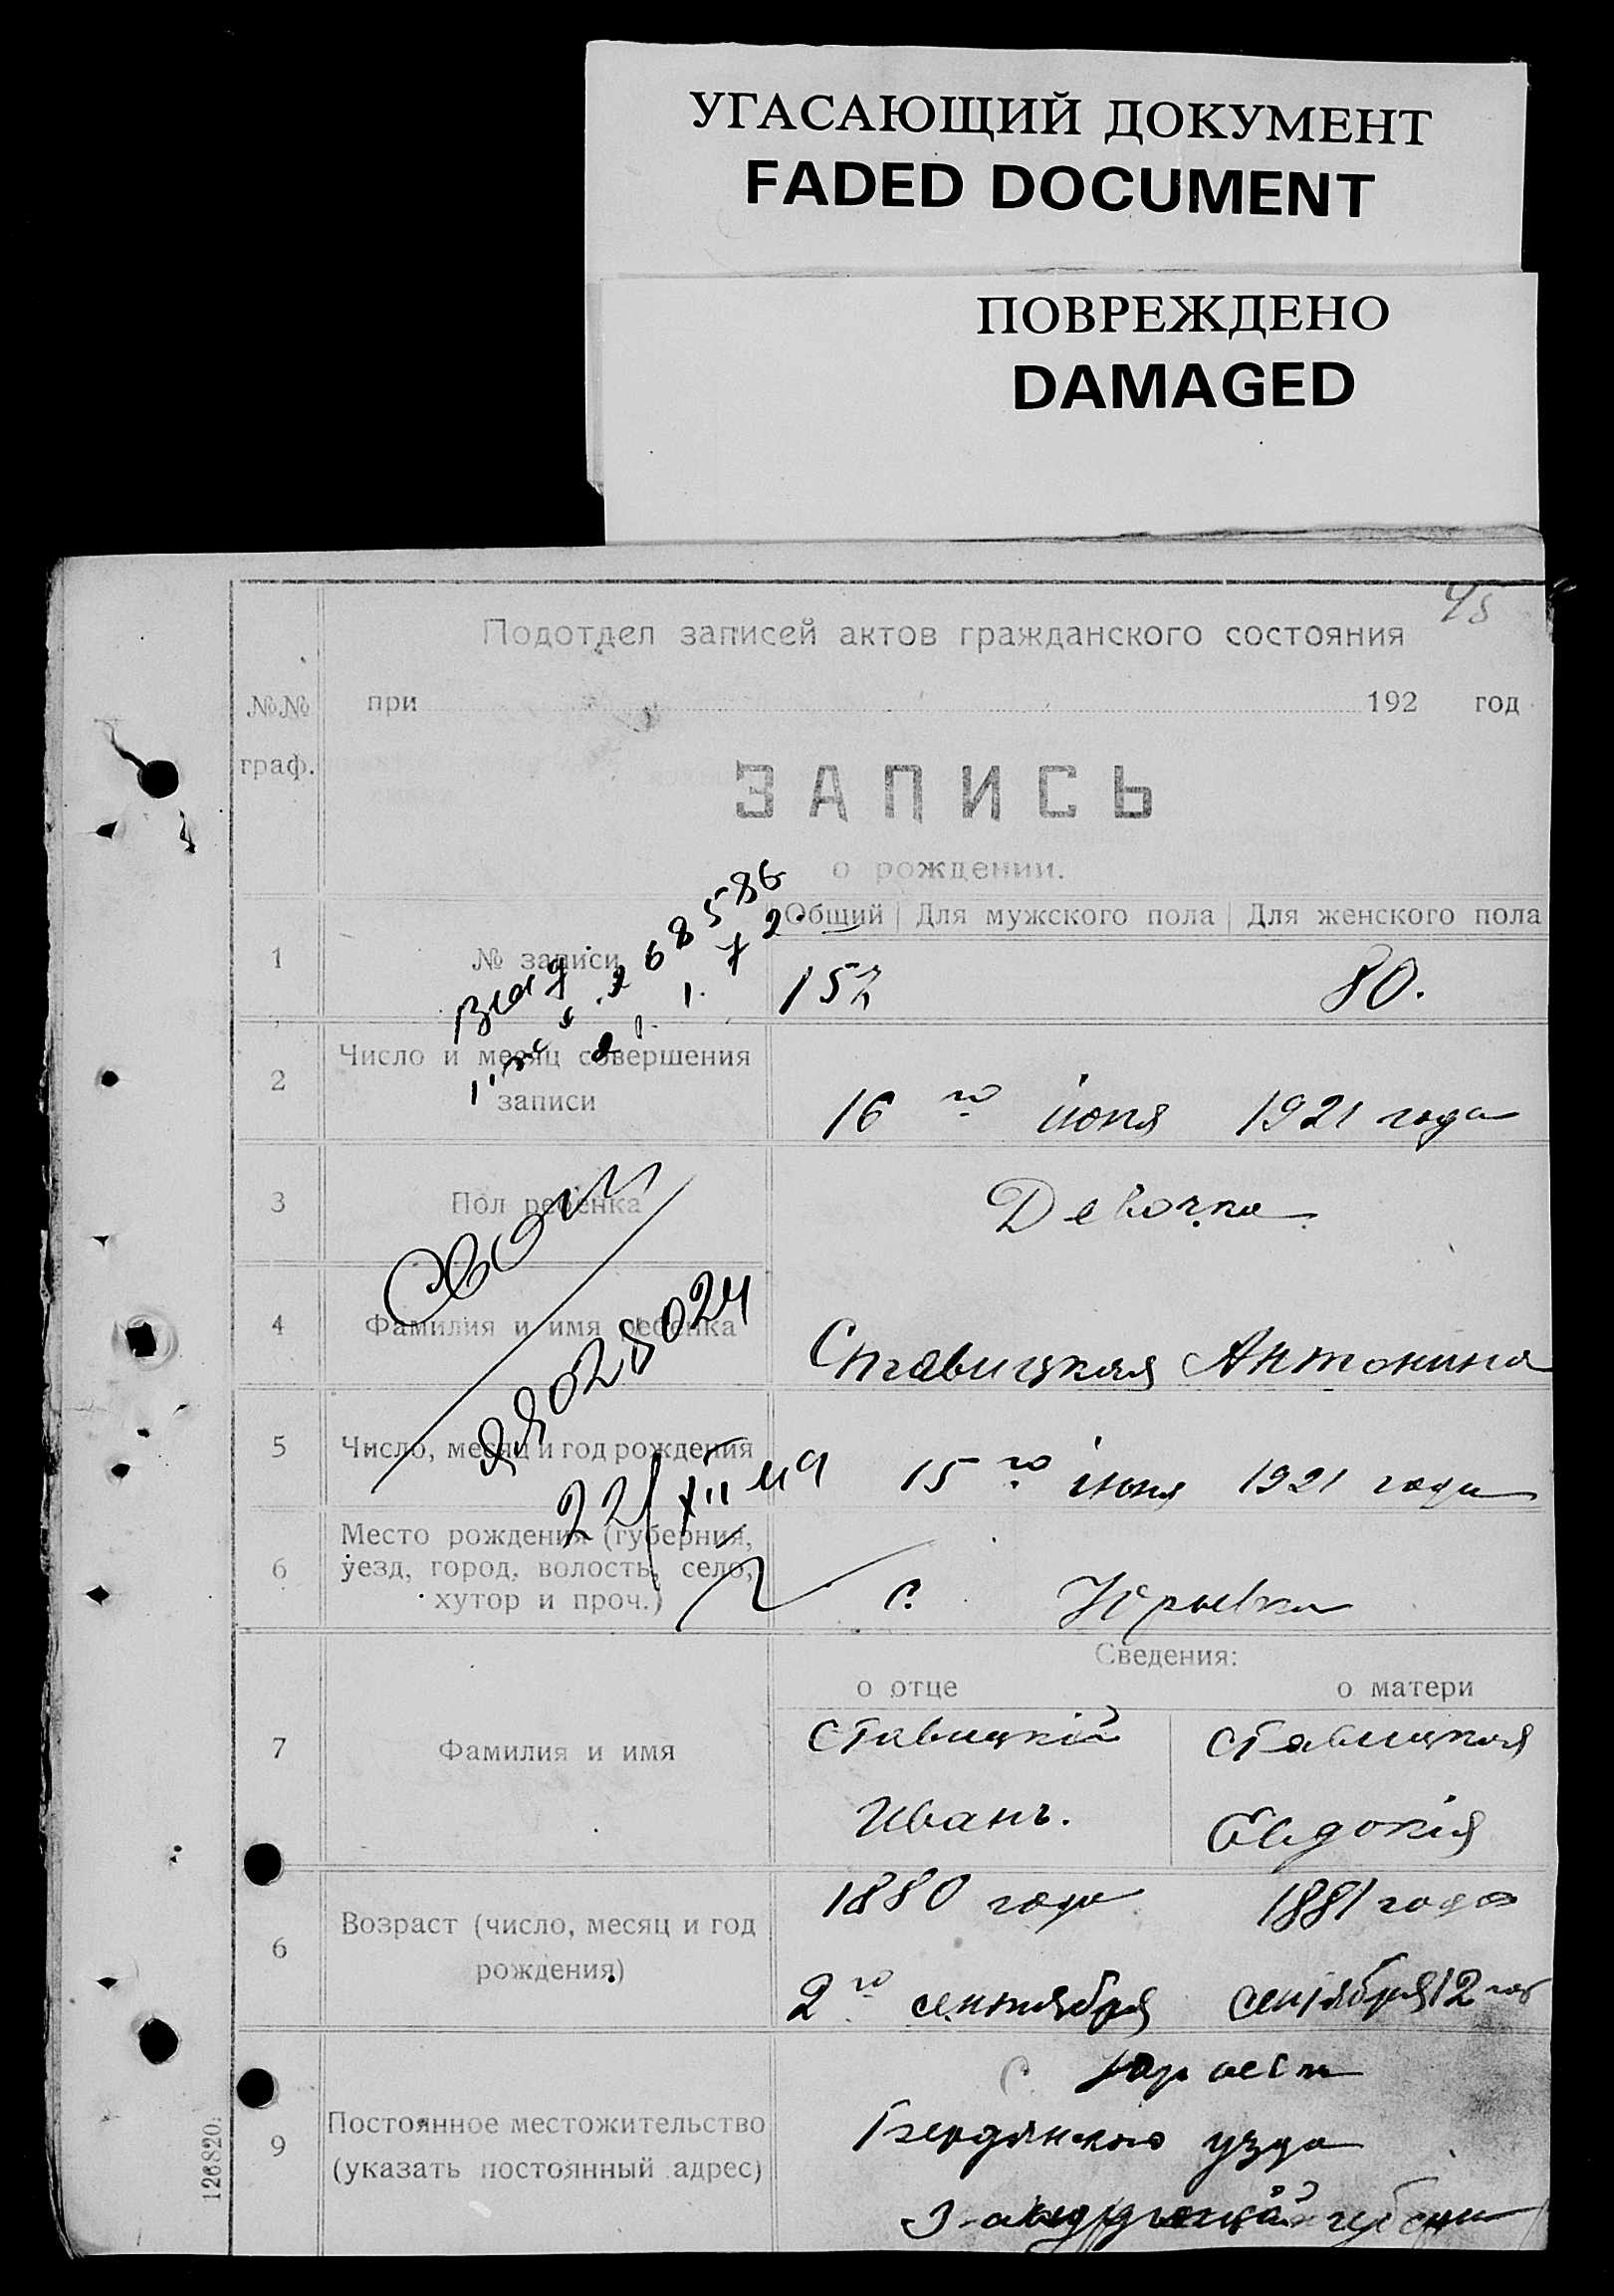 УГАСАЮЩИЙ ДОКУМЕНТ
FADED DOCUMENT
ПОВРЕЖДЕНО
DAMAGED
45
Подотдел записей актов гражданского состояния
№№ граф.
при 192 год
ЗАПИСЬ
о рождении.
Общий Для мужского пола Для женского пола
1 № записи 152 80.
2 Число и месяц совершения
записи
16 го июня 1921 года
3 Пол ребенка Девочка
4 Фамилия и имя ребенка Ставицкая Антонина
5 Число, месяц и год рождения 15 го июня 1921 года
22/XII 49
6 Место рождения (губерния,
уезд, город, волость, село,
хутор и проч.)
с. Юрьевка
Сведения:
о отце о матери
7 Фамилия и имя
Ставицкій Ставицкая
Иванъ. Евдокія
6 Возраст (число, месяц и год
рождения)
1880 года 1881 года
2 го сентября сентября 12 го
9 Постоянное местожительство
(указать постоянный адрес)
с.
Бердянского уезда
губернии
126820.